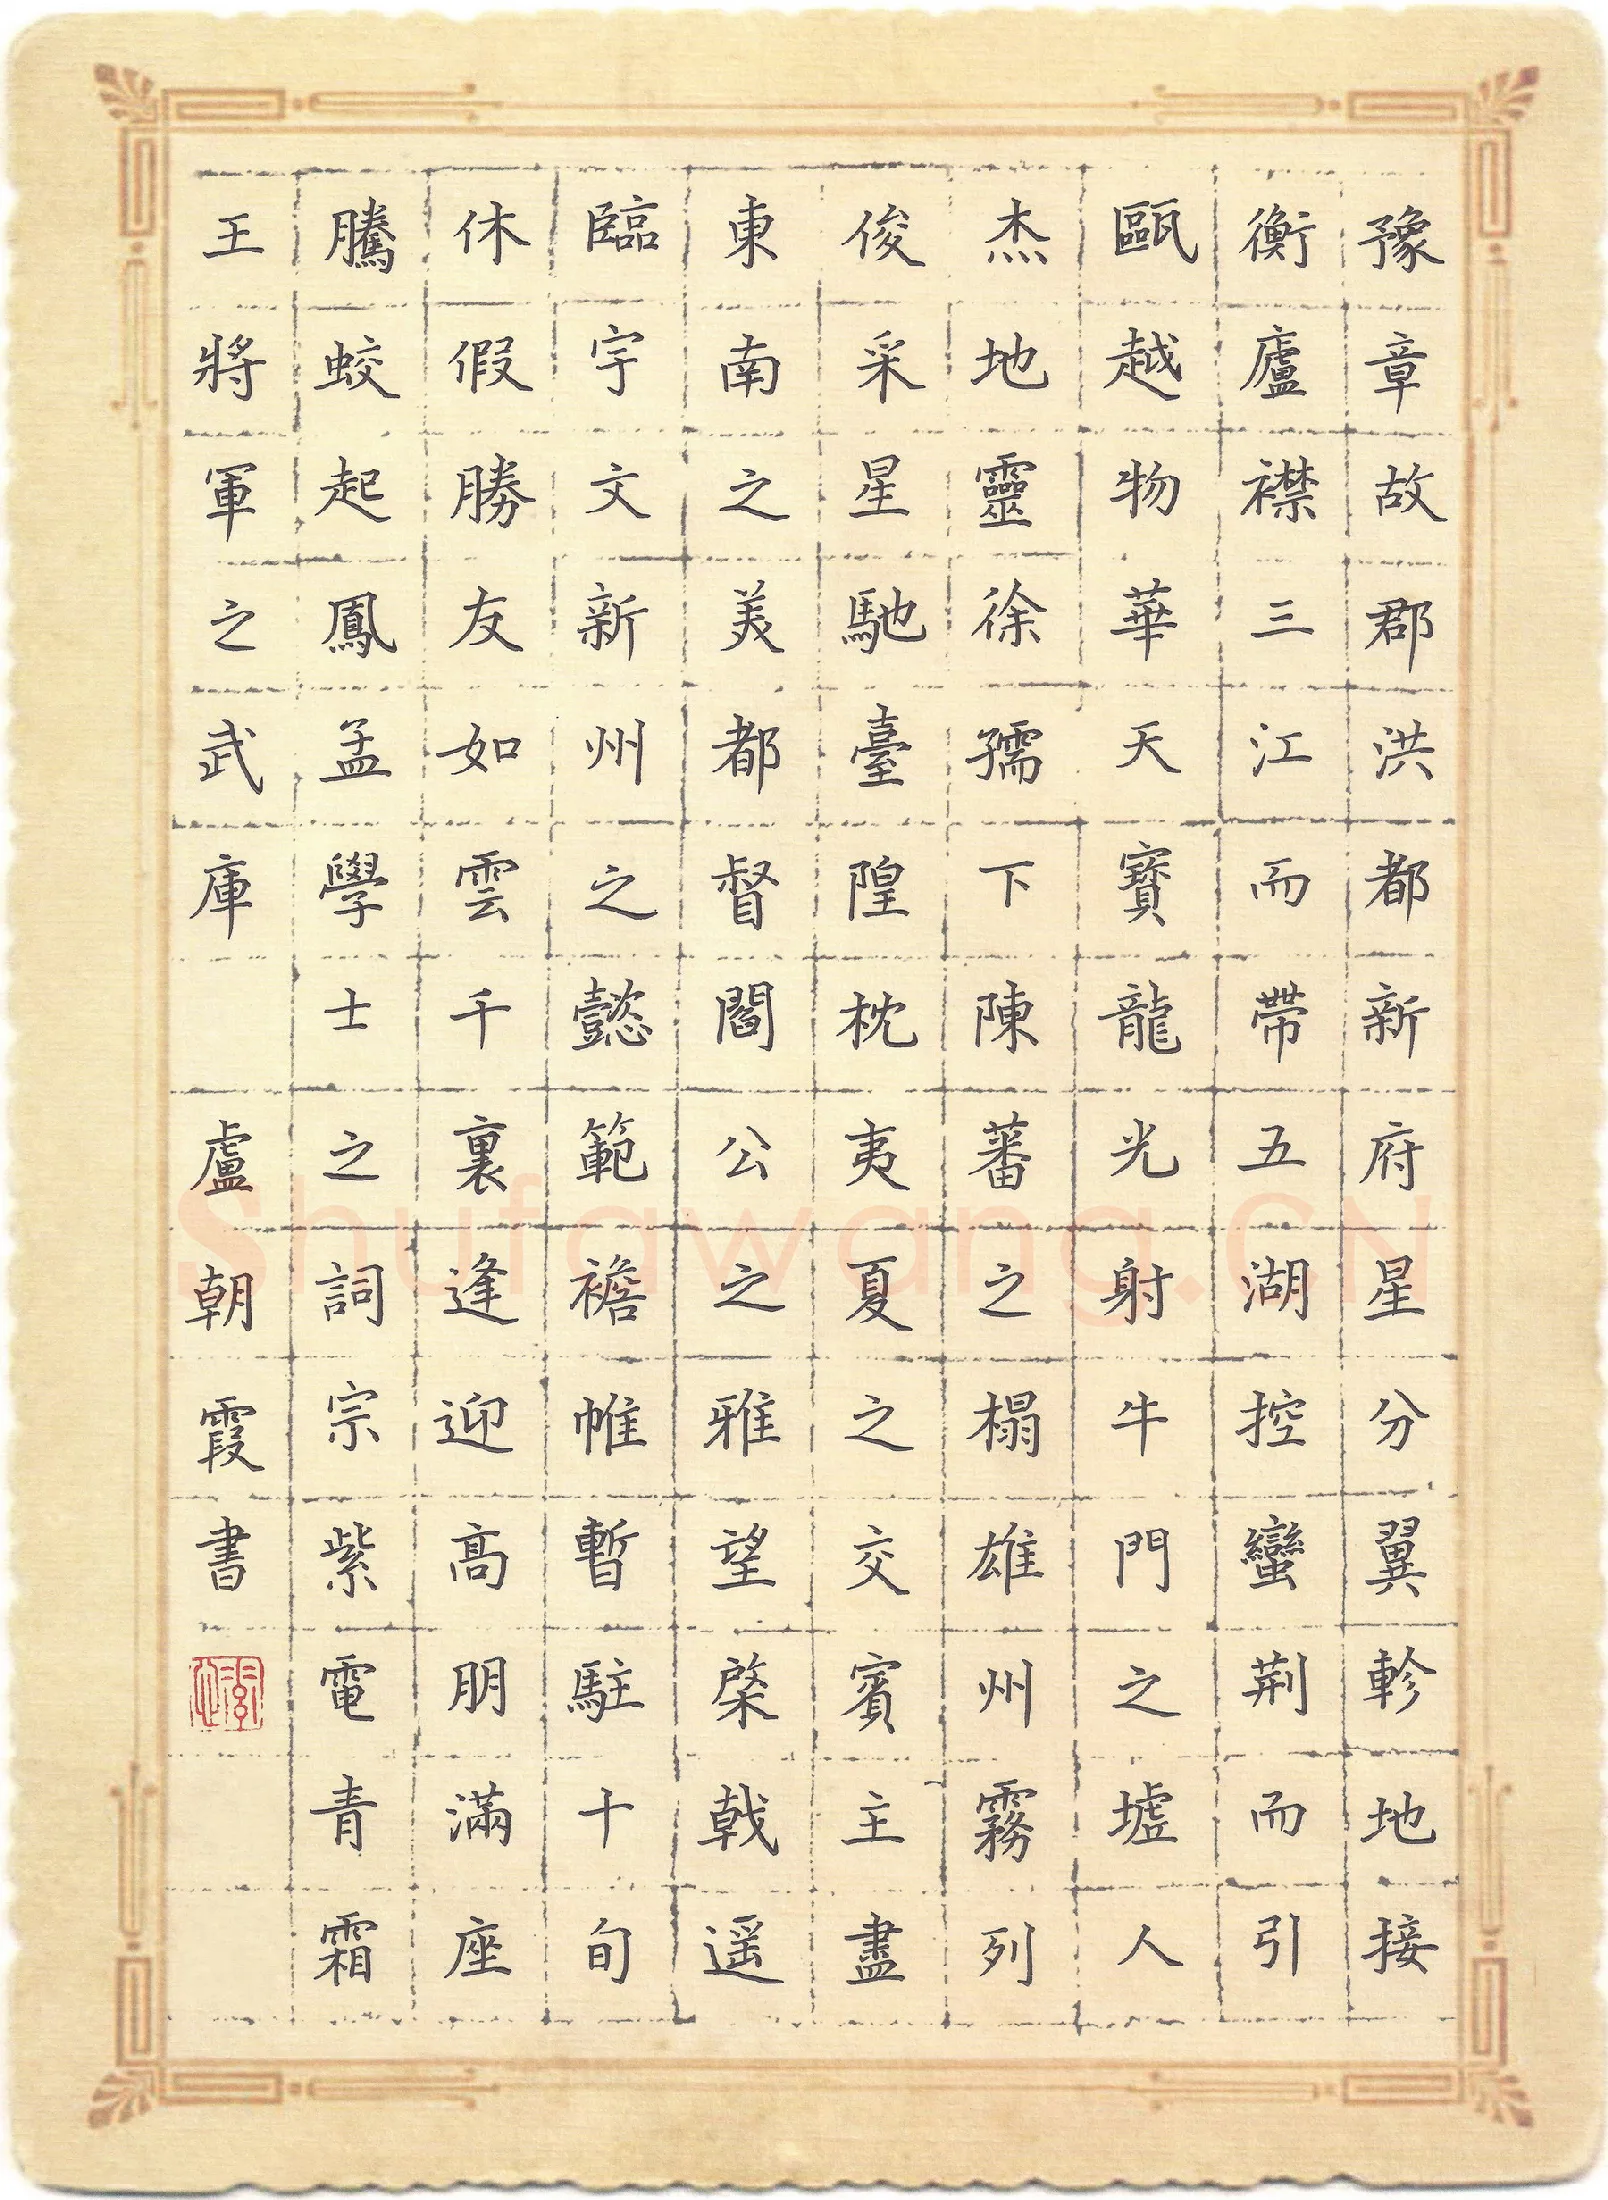 豫章故郡洪都新府星分翼軫地接
衡廬襟三江而帶五湖控蠻荆而引
甌越物華天寶龍光射牛門之墟人
杰地靈徐孺下陳蕃之榻雄州霧列
俊采星馳臺隍枕夷夏之交賓主盡
東南之美都督閻公之雅望棨戟遥
臨宇文新州之懿範襜帷暫駐十旬
休假勝友如雲千裏逢迎高朋滿座
騰蛟起鳳孟學士之詞宗紫電青霜
王將軍之武庫
盧朝霞書
Shufawang.CN